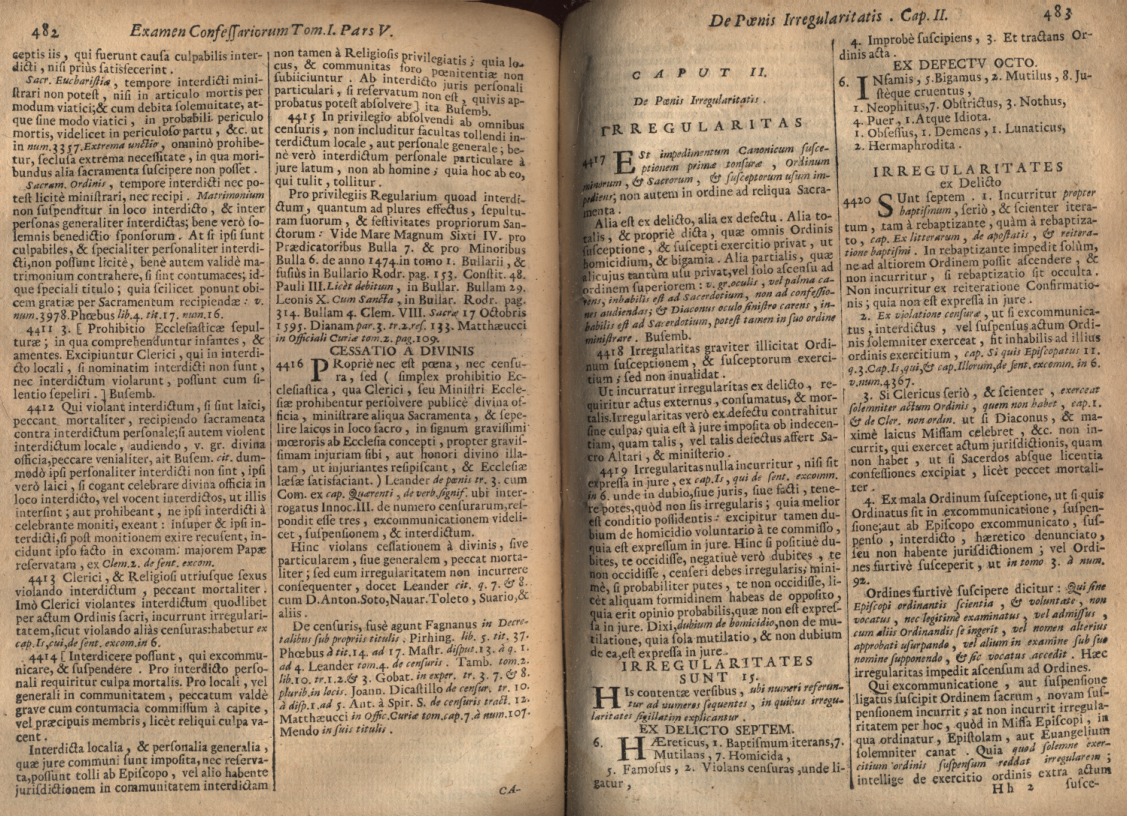 482 Examen Confeſſariorum Tom.I. Pars V.
ceptis iis, qui fuerunt cauſa culpabilis inter-
dicti, niſi priùs ſatisfecerint.
Sacr. Euchariſtiæ, tempore interdicti mini-
ſtrari non poteſt, niſi in articulo mortis per
modum viatici; & cum debita ſolemnitate, at-
que ſine modo viatici, in probabili periculo
mortis, videlicet in periculoſo partu, &c. ut
in num.3357. Extrema unctio, omninò prohibe-
tur, ſecluſa extrema neceſſitate, in qua mori-
bundus alia ſacramenta ſuſcipere non poſſet.
Sacram. Ordinis, tempore interdicti nec po-
teſt licitè miniſtrari, nec recipi. Matrimonium
non ſuſpenditur in loco interdicto, & inter
perſonas generaliter interdictas; bene verò ſo-
lemnis benedictio ſponſorum. At ſi ipſi ſunt
culpabiles, & ſpecialiter perſonaliter interdi-
cti, non poſſunt licitè, benè autem validè ma-
trimonium contrahere, ſi ſint contumaces; id-
que ſpeciali titulo; quia ſcilicet ponunt obi-
cem gratiæ per Sacramentum recipiendæ: v.
num.3978. Phœbus lib.4. tit.17. num.16.
4411 3. [ Prohibitio Eccleſiaſticæ ſepul-
turæ; in qua comprehenduntur infantes, &
amentes. Excipiuntur Clerici, qui in interdi-
cto locali, ſi nominatim interdicti non ſunt,
nec interdictum violarunt, poſſunt cum ſi-
lentio ſepeliri. ] Buſemb.
4412 Qui violant interdictum, ſi ſint laici,
peccant mortaliter, recipiendo ſacramenta
contra interdictum perſonale; ſi autem violent
interdictum locale, audiendo, v. gr. divina
officia, peccare venialiter, ait Buſem. cit. dum-
modò ipſi perſonaliter interdicti non ſint, ipſi
verò laici, ſi cogant celebrare divina officia in
loco interdicto, vel vocent interdictos, ut illis
interſint; aut prohibeant, ne ipſi interdicti à
celebrante moniti, exeant: inſuper & ipſi in-
terdicti, ſi poſt monitionem exire recuſent, in-
cidunt ipſo facto in excomm: majorem Papæ
reſervatam, ex Clem.2. de ſent. excom.
4413 Clerici, & Religioſi utriuſque ſexus
violando interdictum, peccant mortaliter.
Imò Clerici violantes interdictum quodlibet
per actum Ordinis ſacri, incurrunt irregulari-
tatem, ſicut violando aliàs cenſuras: habetur ex
cap. Is, cui, de ſent. excom. in 6.
4414 [ Interdicere poſſunt, qui excommu-
nicare, & ſuſpendere. Pro interdicto perſo-
nali requiritur culpa mortalis. Pro locali, vel
generali in communitatem, peccatum valdè
grave cum contumacia commiſſum à capite,
vel præcipuis membris, licèt reliqui culpa va-
cent.
Interdicta localia, & perſonalia generalia,
quæ jure communi ſunt impoſita, nec reſerva-
ta, poſſunt tolli ab Epiſcopo, vel alio habente
juriſdictionem in communitatem interdictam
non tamen à Religioſis privilegiatis; quia lo-
cus, & communitas foro pœnitentiæ non
ſubiiciuntur. Ab interdicto juris perſonali
particulari, ſi reſervatum non eſt, quivis ap-
probatus poteſt abſolvere ] ita Buſemb.
4415 In privilegio abſolvendi ab omnibus
cenſuris, non includitur facultas tollendi in-
terdictum locale, aut perſonale generale; be-
nè verò interdictum perſonale particulare à
jure latum, non ab homine; quia hoc ab eo,
qui tulit, tollitur.
Pro privilegiis Regularium quoad interdi-
ctum, quantum ad plures effectus, ſepultu-
ram ſuorum, & feſtivitates propriorum San-
ctorum: Vide Mare Magnum Sixti IV. pro
Prædicatoribus Bulla 7. & pro Minoribus
Bulla 6. de anno 1474. in tomo 1. Bullarii, &
fuſiùs in Bullario Rodr. pag. 153. Conſtit. 48.
Pauli III. Licèt debitum, in Bullar. Bullam 29.
Leonis X. Cum Sancta, in Bullar. Rodr. pag.
314. Bullam 4. Clem. VIII. Sacræ 17 Octobris
1595. Dianam par.3. tr.2. reſ. 133. Matthæucci
in Officiali Curiæ tom.2. pag.109.
CESSATIO A DIVINIS
4416 PRopriè nec eſt pœna, nec cenſu-
ra, ſed ( ſimplex prohibitio Ec-
cleſiaſtica, qua Clerici, ſeu Miniſtri Eccle-
ſiæ prohibentur perſolvere publicè divina of-
ficia, miniſtrare aliqua Sacramenta, & ſepe-
lire laicos in loco ſacro, in ſignum graviſſimi
mœroris ab Eccleſia concepti, propter graviſ-
ſimam injuriam ſibi, aut honori divino illa-
tam, ut injuriantes reſipiſcant, & Eccleſiæ
læſæ ſatisfaciant. ) Leander de pœnis tr. 3. cum
Com. ex cap. Quærenti, de verb. ſignif. ubi inter-
rogatus Innoc.III. de numero cenſurarum, reſ-
pondit eſſe tres, excommunicationem videli-
cet, ſuſpenſionem, & interdictum.
Hinc violans ceſſationem à divinis, ſive
particularem, ſiue generalem, peccat morta-
liter; ſed eum irregularitatem non incurrere
conſequenter, docet Leander cit. q. 7. & 8.
cum D.Anton. Soto, Nauar. Toleto, Suario, &
aliis.
De cenſuris, fusè agunt Fagnanus in Decre-
talibus ſub propriis titulis. Pirhing. lib. 5. tit. 37.
Phœbus à tit.14. ad 17. Maſtr. diſput.13. à q. 1.
ad 4. Leander tom.4. de cenſuris. Tamb. tom.2.
lib.10. tr.1.2. & 3. Gobat. in exper. tr. 3. 7. & 8.
plurib. in locis. Joann. Dicaſtillo de cenſur. tr. 10.
à diſp.1. ad 5. Ant. à Spir. S. de cenſuris tract. 12.
Matthæucci in Offic. Curiæ tom. cap.7. à num.107.
Mendo in ſuis titulis.
CA-
De Pœnis Irregularitatis. Cap. II. 483
CAPUT II.
De Pœnis Irregularitatis.
IRREGULARITAS
4417 ESt impedimentum Canonicum ſuſce-
ptionem primæ tonſuræ, Ordinum
minorum, & Sacrorum, & ſuſceptorum uſum im-
pediens; non autem in ordine ad reliqua Sacra-
menta.
Alia eſt ex delicto, alia ex defectu. Alia to-
talis, & propriè dicta, quæ omnis Ordinis
ſuſceptione, & ſuſcepti exercitio privat, ut
homicidium, & bigamia. Alia partialis, quæ
alicujus tantùm uſu privat, vel ſolo aſcenſu ad
ordinem ſuperiorem: v. gr. oculis, vel palma ca-
rens, inhabilis eſt ad Sacerdotium, non ad confeſſio-
nes audiendas; & Diaconus oculo ſiniſtro carens, in-
habilis eſt ad Sacerdotium, poteſt tamen in ſuo ordine
miniſtrare. Buſemb.
4418 Irregularitas graviter illicitat Ordi-
num ſuſceptionem, & ſuſceptorum exerci-
tium; ſed non invalidat.
Ut incurratur irregularitas ex delicto, re-
quiritur actus externus, conſumatus, & mor-
talis. Irregularitas verò ex defectu contrahitur
ſine culpa; quia eſt à jure impoſita ob indecen-
tiam, quam talis, vel talis defectus affert Sa-
cro Altari, & miniſterio.
4419 Irregularitas nulla incurritur, niſi ſit
expreſſa in jure, ex cap. Is, qui, de ſent. excomm.
in 6. unde in dubio, ſiue juris, ſiue facti, tene-
re potes, quòd non ſis irregularis; quia melior
eſt conditio poſſidentis: excipitur tamen du-
bium de homicidio voluntariè à te commiſſo,
quia eſt expreſſum in jure. Hinc ſi poſitiuè du-
bites, te occidiſſe, negativè verò dubites, te
non occidiſſe, cenſeri debes irregularis; mini-
mè, ſi probabiliter putes, te non occidiſſe, li-
cèt aliquam formidinem habeas de oppoſito,
quia erit opinio probabilis, quæ non eſt expreſ-
ſa in jure. Dixi, dubium de homicidio, non de mu-
tilatione, quia ſola mutilatio, & non dubium
de ea, eſt expreſſa in jure.
IRREGULARITATES
SUNT 15.
HIs contentæ verſibus, ubi numeri referun-
tur ad numeros ſequentes, in quibus irregu-
laritates ſigillatim explicantur.
EX DELICTO SEPTEM.
6. HÆreticus, 1. Baptiſmum iterans, 7.
Mutilans, 7. Homicida,
5. Famoſus, 2. Violans cenſuras, unde li-
gatur,
4. Improbè ſuſcipiens, 3. Et tractans Or-
dinis acta.
EX DEFECTV OCTO.
6. INfamis, 5. Bigamus, 2. Mutilus, 8. Ju-
ſtèque cruentus,
1. Neophitus, 7. Obſtrictus, 3. Nothus,
4. Puer, 1. Atque Idiota.
1. Obſeſſus, 1. Demens, 1. Lunaticus,
2. Hermaphrodita.
IRREGULARITATES
ex Delicto
4420 SUnt ſeptem. 1. Incurritur propter
baptiſmum, ſeriò, & ſcienter itera-
tum, tam à rebaptizante, quàm à rebaptiza-
to, cap. Ex litterarum, de apoſtatis, & reitera-
tione baptiſmi. In rebaptizante impedit ſolùm,
ne ad altiorem Ordinem poſſit aſcendere, &
non incurritur, ſi rebaptizatio ſit occulta.
Non incurritur ex reiteratione Confirmatio-
nis; quia non eſt expreſſa in jure.
2. Ex violatione cenſuræ, ut ſi excommunica-
tus, interdictus, vel ſuſpenſus, actum Ordi-
nis ſolemniter exerceat, fit inhabilis ad illius
ordinis exercitium, cap. Si quis Epiſcopatus 11.
q.3. Cap. Is, qui, & cap. Illorum, de ſent. excomun. in 6.
v. num.4367.
3. Si Clericus ſeriò, & ſcienter, exerceat
ſolemniter actum Ordinis, quem non habet, cap.1.
& de Cler. non ordin. ut ſi Diaconus, & ma-
ximè laicus Miſſam celebret, &c. non in-
currit, qui exercet actum juriſdictionis, quam
non habet, ut ſi Sacerdos abſque licentia
confeſſiones excipiat, licèt peccet mortali-
ter.
4. Ex mala Ordinum ſuſceptione, ut ſi quis
Ordinatus ſit in excommunicatione, ſuſpen-
ſione; aut ab Epiſcopo excommunicato, ſuſ-
penſo, interdicto, hæretico denunciato,
ſeu non habente juriſdictionem; vel Ordi-
nes furtivè ſuſceperit, ut in tomo 3. à num.
92.
Ordines furtivè ſuſcipere dicitur: Qui ſine
Epiſcopi ordinantis ſcientia, & voluntate, non
vocatus, nec legitimè examinatus, vel admiſſus,
cum aliis Ordinandis ſe ingerit, vel nomen alterius
approbati uſurpando, vel alium in examine ſub ſuo
nomine ſupponendo, & ſic vocatus accedit. Hæc
irregularitas impedit aſcenſum ad Ordines.
Qui excommunicatione, aut ſuſpenſione
ligatus ſuſcipit Ordinem ſacrum, novam ſuſ-
penſionem incurrit; at non incurrit irregula-
ritatem per hoc, quòd in Miſſa Epiſcopi, in
qua ordinatur, Epiſtolam, aut Euangelium
ſolemniter canat. Quia quod ſolemne exer-
citium ordinis ſuſpenſum reddat irregularem;
intellige de exercitio ordinis extra actum
Hh 2 ſuſce-